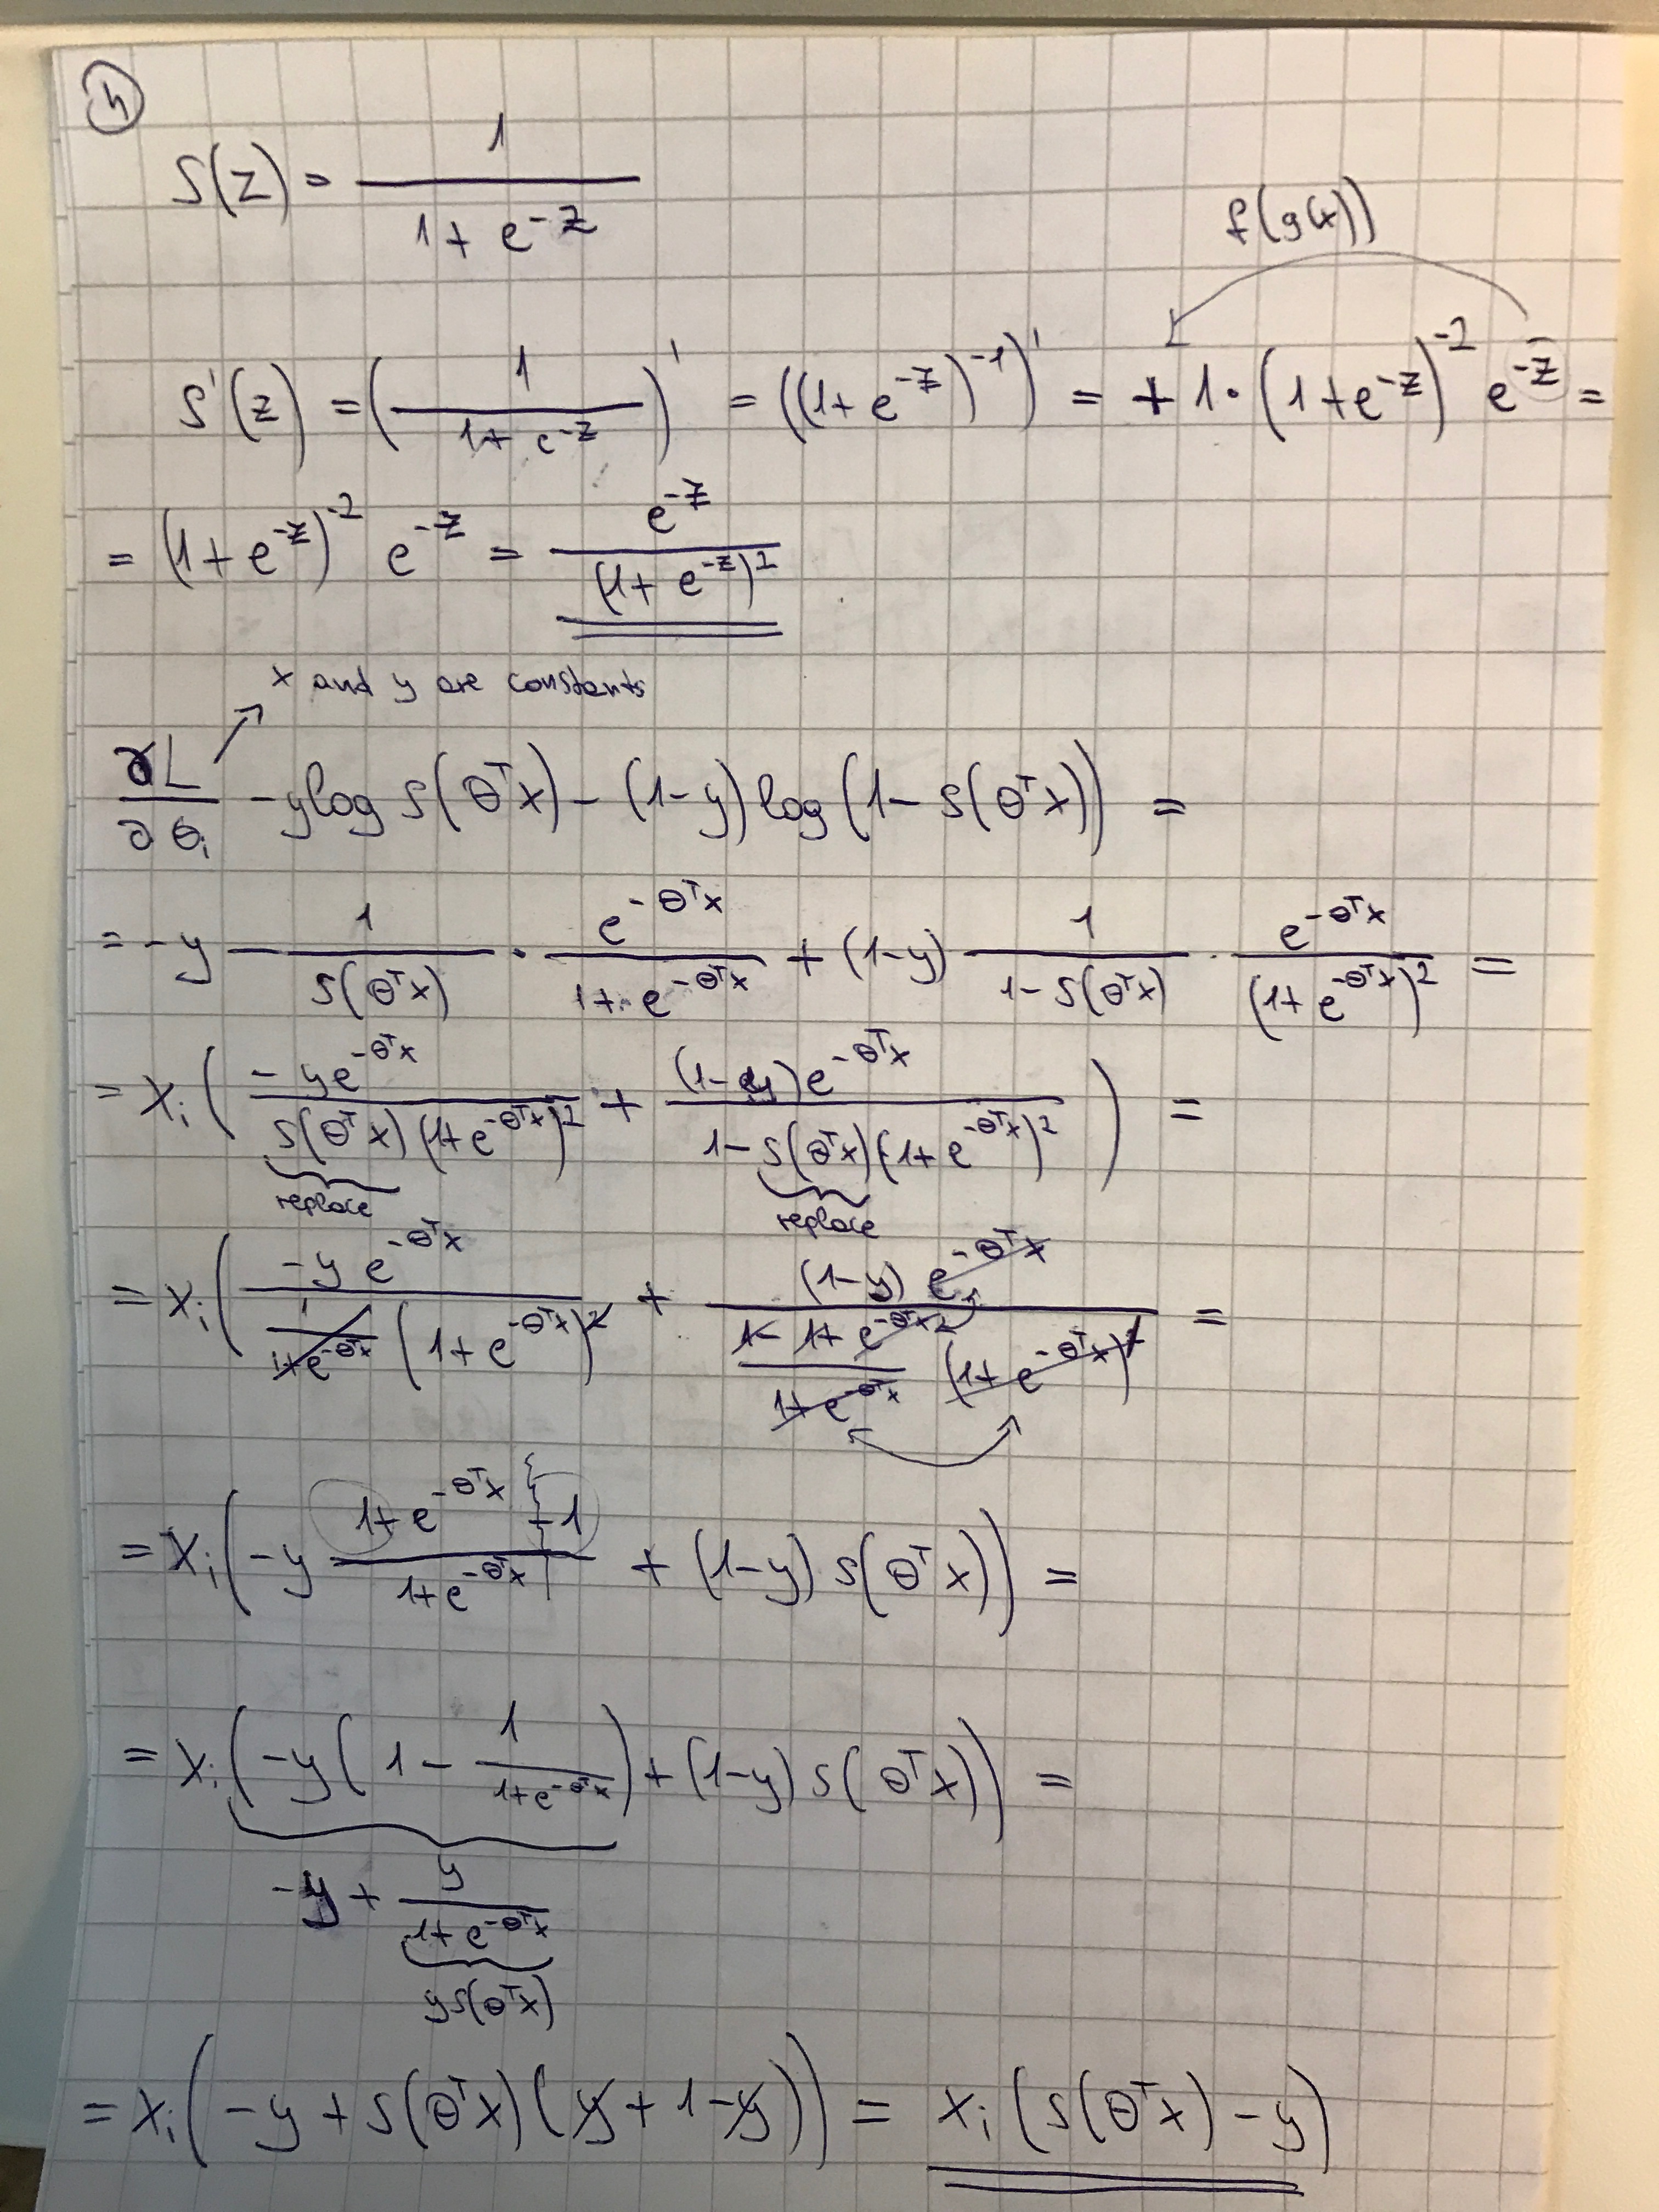 4
S(z) = 1 / (1 + e^-z)
f(g(x))
S'(z) = (1 / (1 + e^-z))' = ((1 + e^-z)^-1)' = + 1 · (1 + e^-z)^-2 e^-z =
= (1 + e^-z)^-2 e^-z = e^-z / (1 + e^-z)^2
x and y are constants
∂L / ∂θ_i - y log S(θ^T x) - (1-y) log (1 - S(θ^T x)) =
= -y 1 / S(θ^T x) · e^-θ^T x / 1 + e^-θ^T x + (1-y) 1 / 1 - S(θ^T x) · e^-θ^T x / (1 + e^-θ^T x)^2 =
= x_i ( -y e^-θ^T x / S(θ^T x) (1 + e^-θ^T x)^2 + (1-y) e^-θ^T x / 1 - S(θ^T x) (1 + e^-θ^T x)^2 ) =
replace replace
= x_i ( -y e^-θ^T x / (1 / 1+e^-θ^T x) (1 + e^-θ^T x)^2 + (1-y) e^-θ^T x / (1 - 1 + e^-θ^T x / 1 + e^-θ^T x) (1 + e^-θ^T x)^2 =
= x_i ( -y 1 + e^-θ^T x - 1 / 1 + e^-θ^T x + (1-y) S(θ^T x) ) =
= x_i ( -y ( 1 - 1 / 1 + e^-θ^T x ) + (1-y) S(θ^T x) ) =
-y + y / 1 + e^-θ^T x
y S(θ^T x)
= x_i ( -y + S(θ^T x) (y + 1 - y) ) = x_i (S(θ^T x) - y)